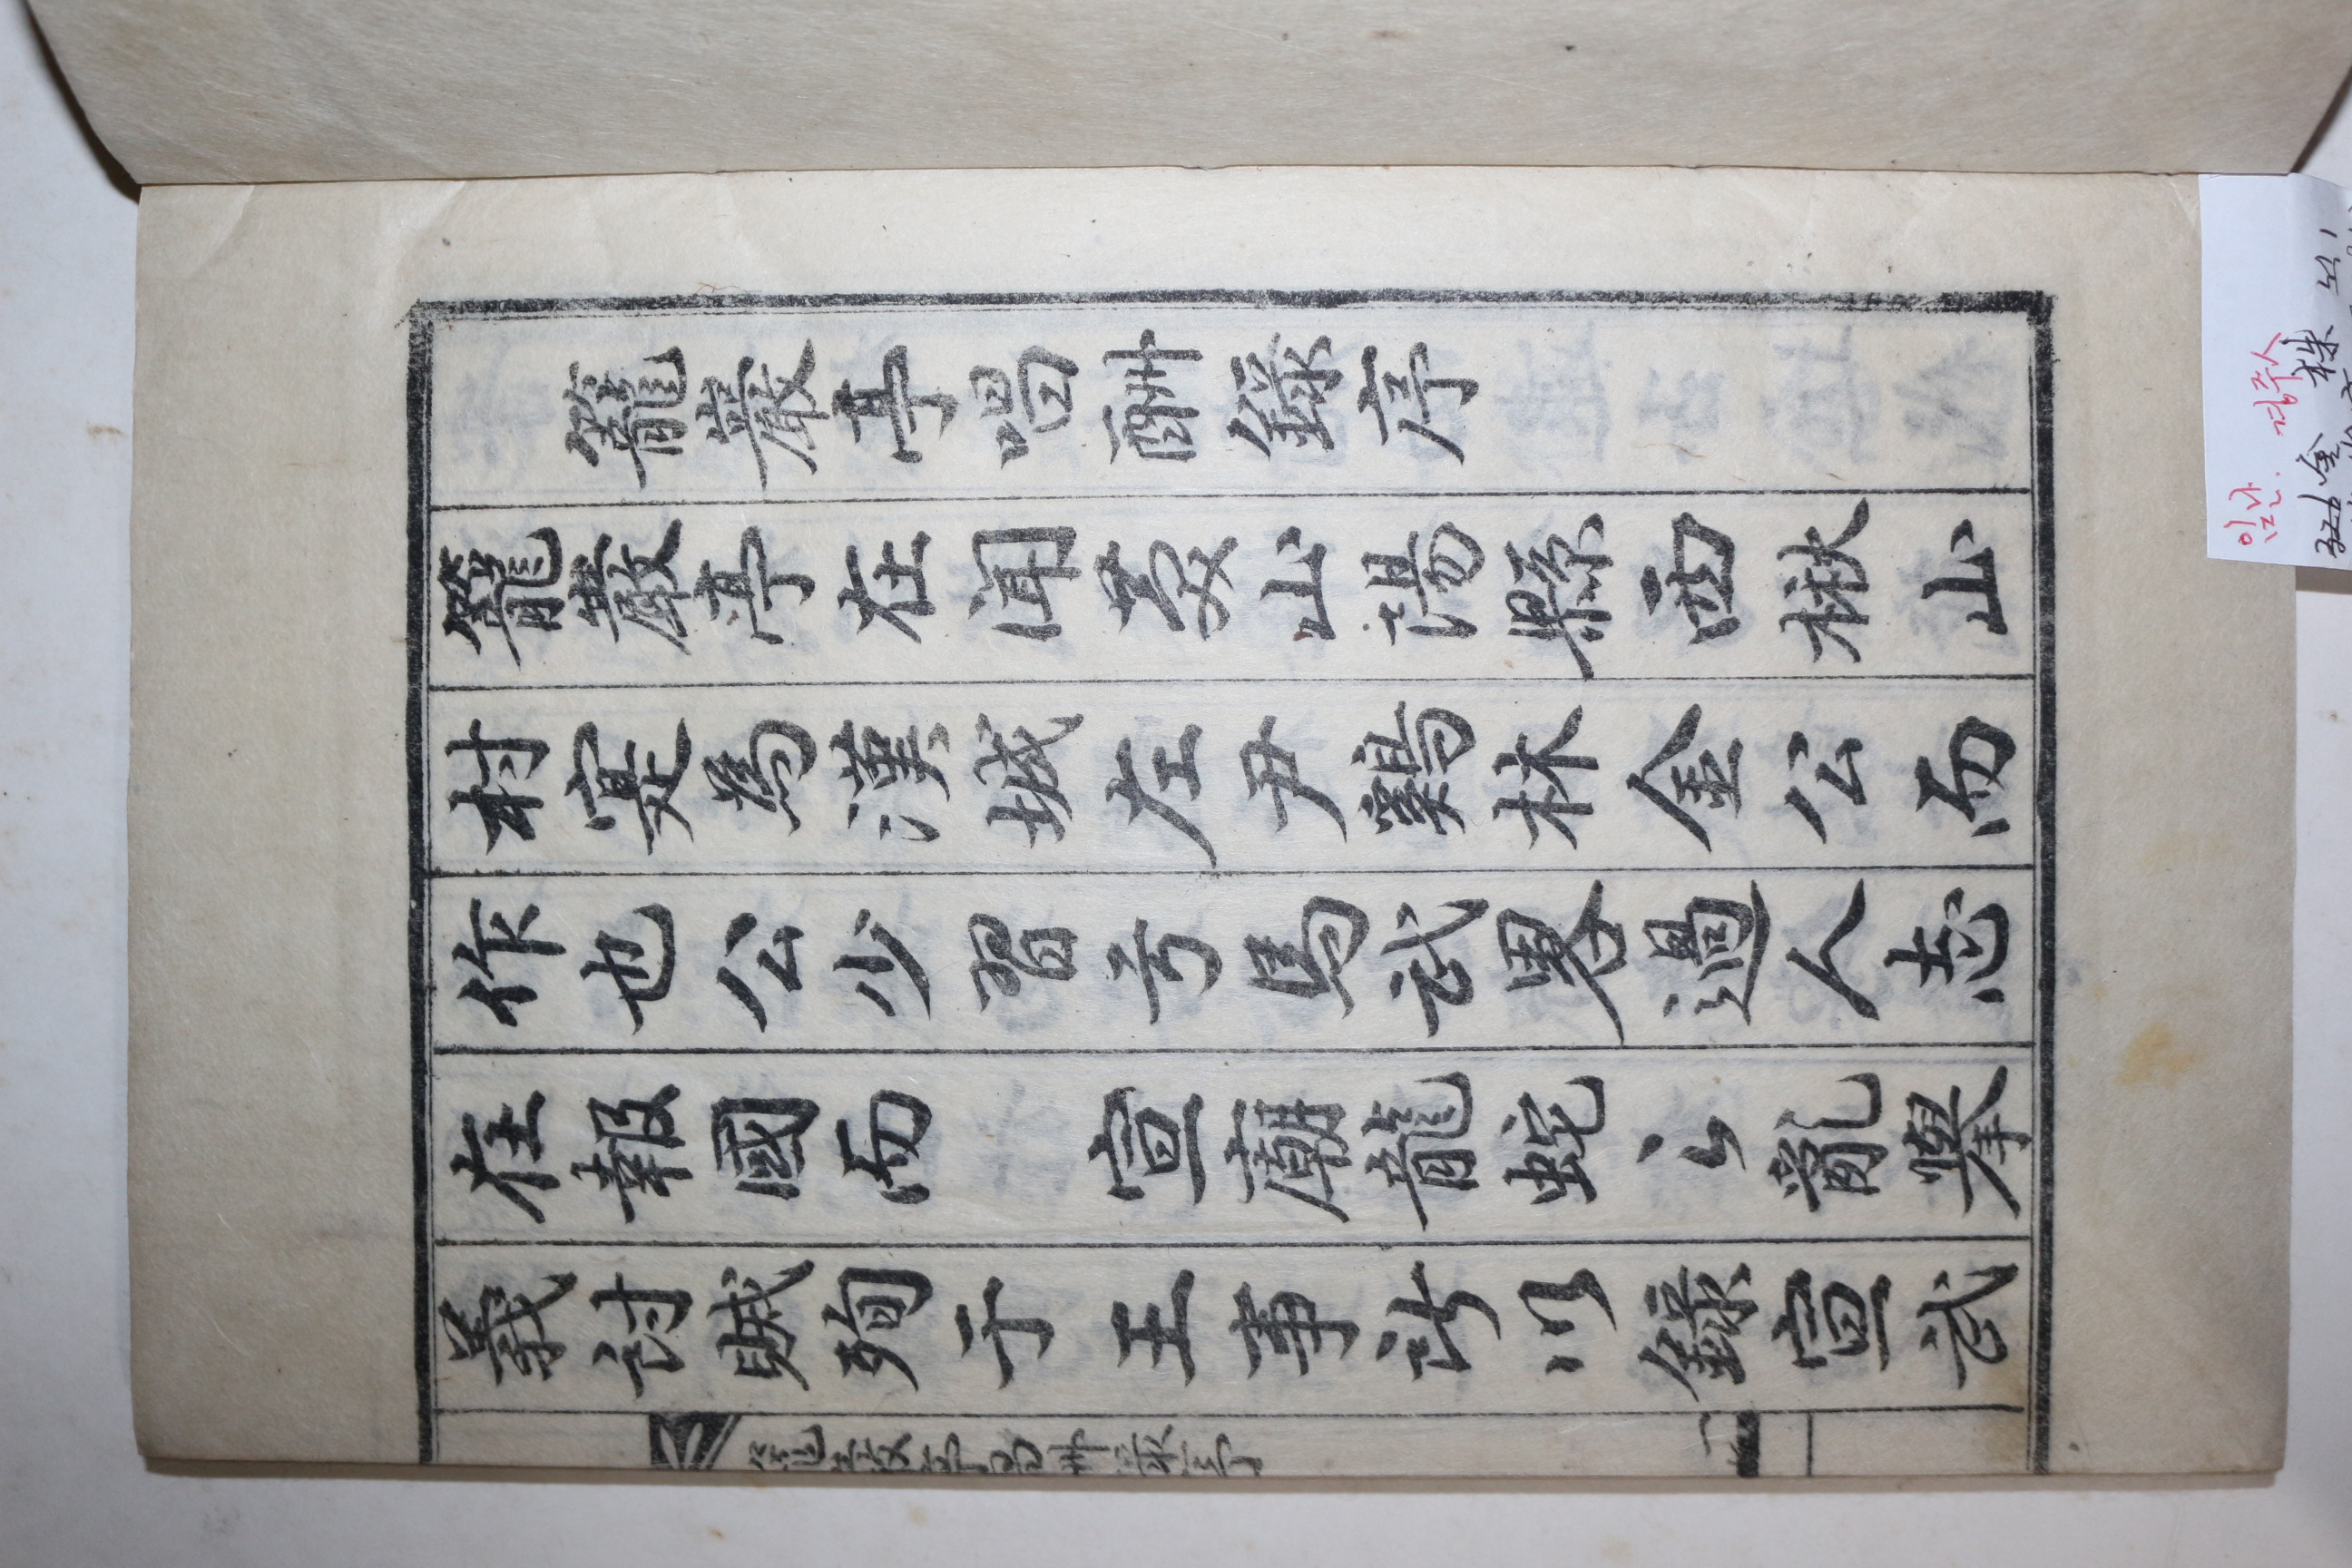 籠巖亭唱酬錄序
籠巖亭在聞慶山陽縣西楸山
村寔為漢城左尹鷄林金公而
作也公少習弓馬武畧過人志
在報國而 宣廟龍蛇之亂擧
義討賊殉于王事所以錄宣武
籠巖亭唱酬錄序
一
임난. 경주人
金 株